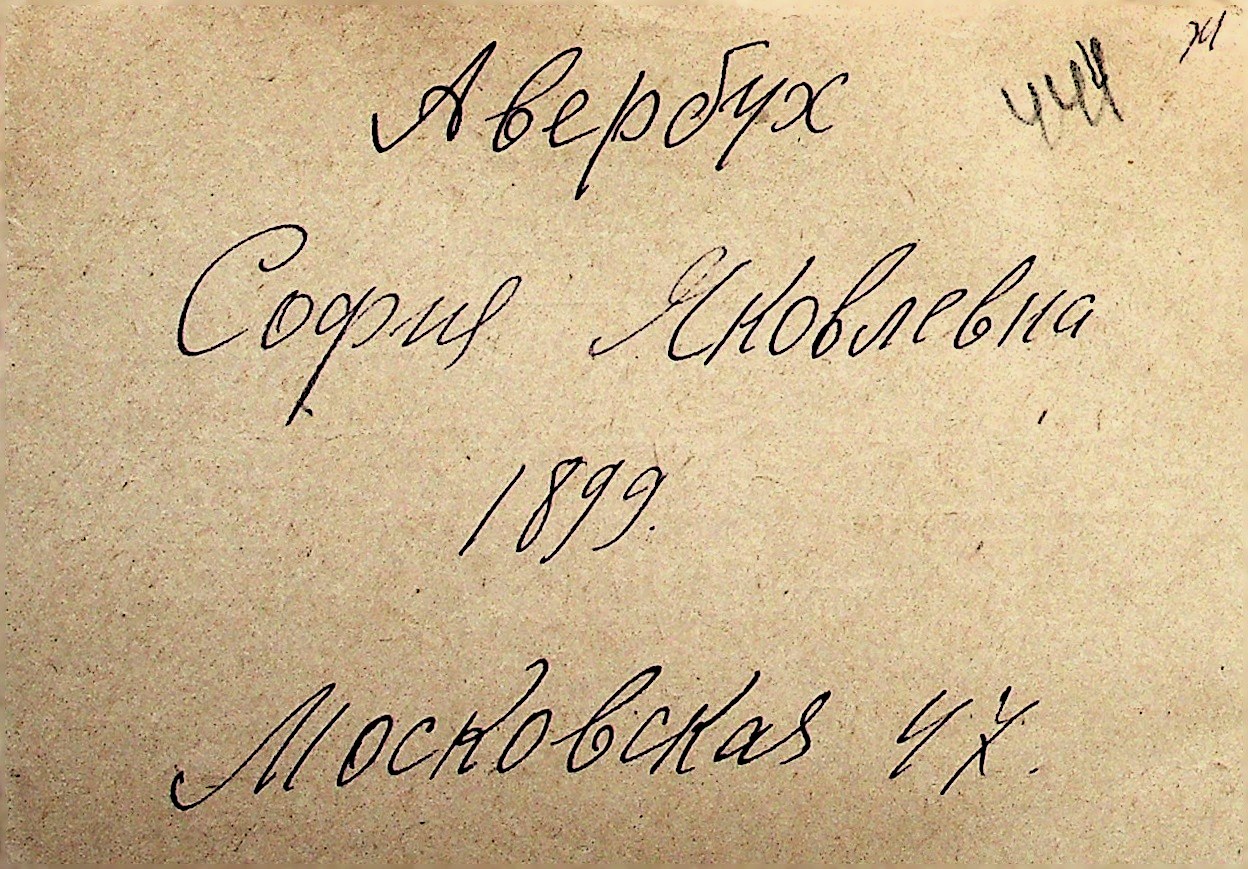 Авербух
444
София Яковлевна
1899.
Московская 47.